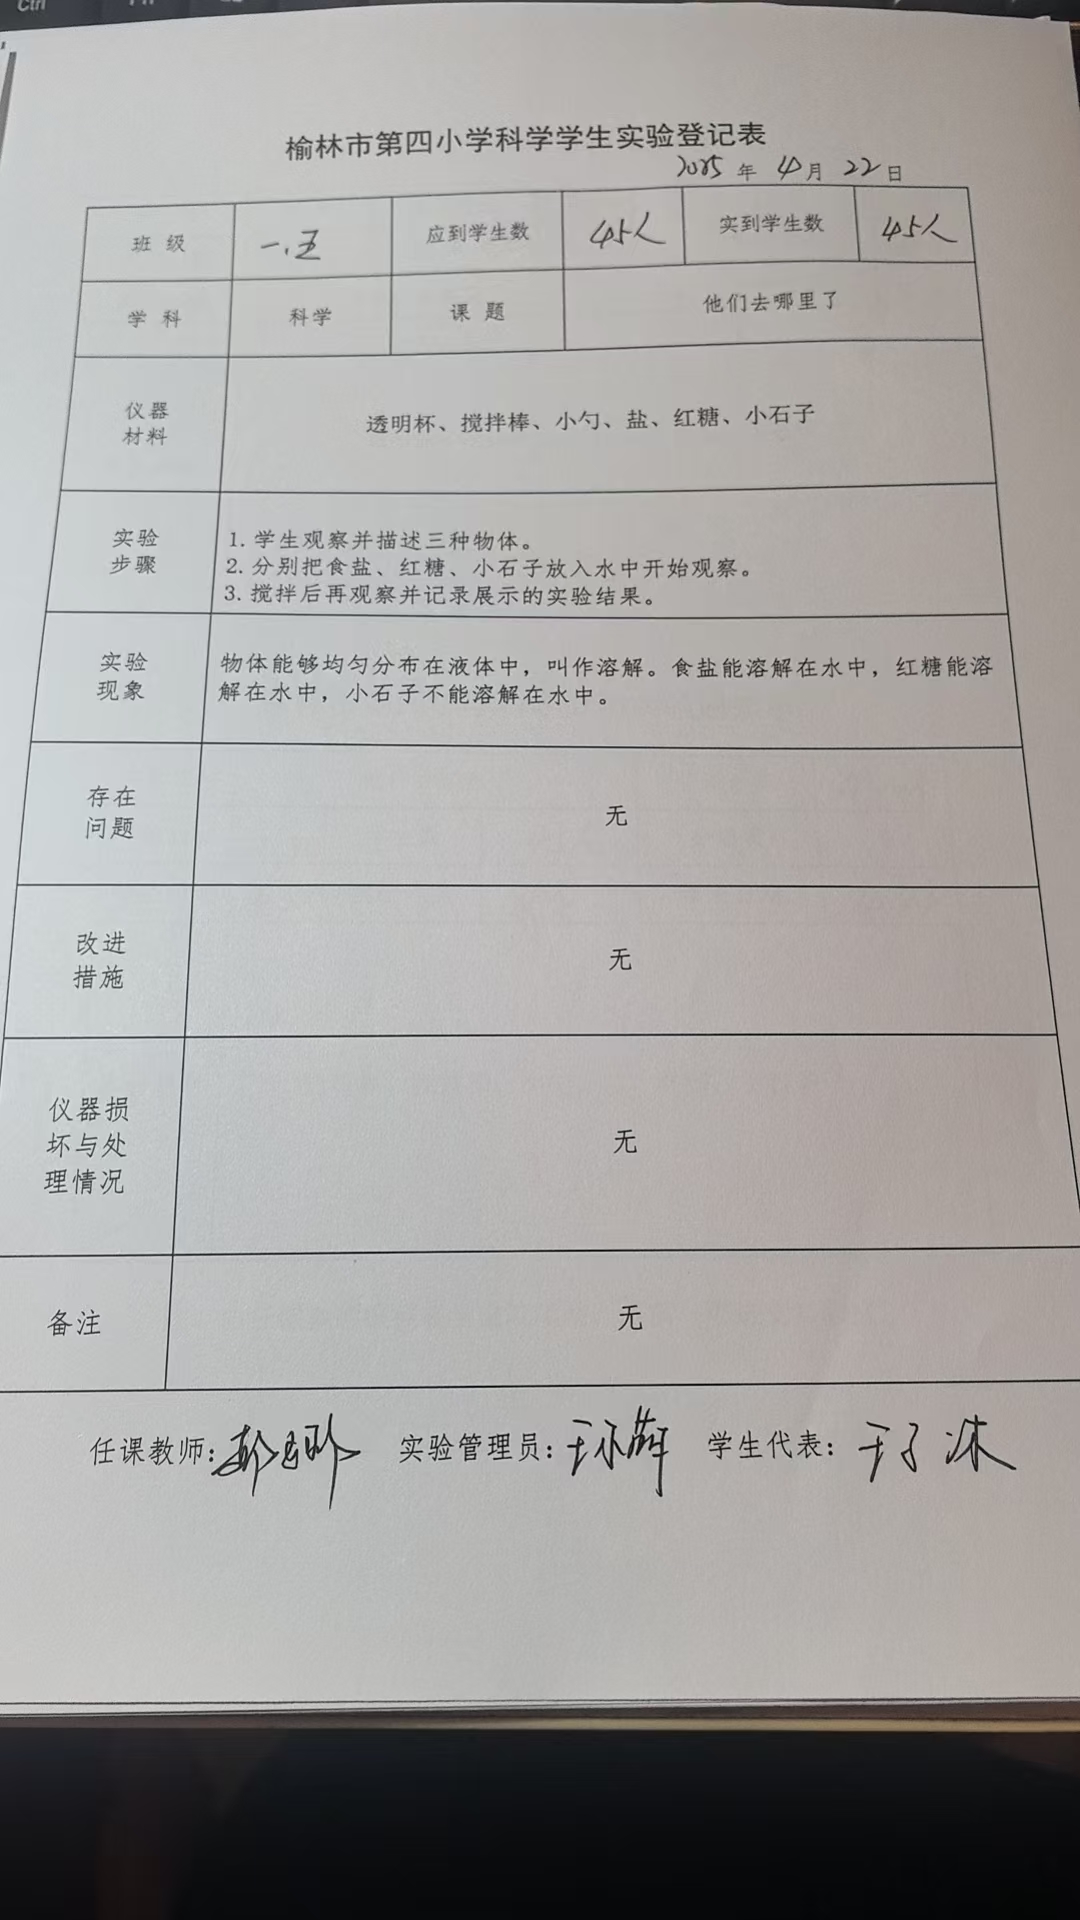 Ctrl
榆林市第四小学科学学生实验登记表
2025 年 4 月 22 日
班 级 一.五 应到学生数 45人 实到学生数 45人
学 科 科学 课 题 他们去哪里了
仪器
材料
透明杯、搅拌棒、小勺、盐、红糖、小石子
实验
步骤
1. 学生观察并描述三种物体。
2. 分别把食盐、红糖、小石子放入水中开始观察。
3. 搅拌后再观察并记录展示的实验结果。
实验
现象
物体能够均匀分布在液体中，叫作溶解。食盐能溶解在水中，红糖能溶
解在水中，小石子不能溶解在水中。
存在
问题
无
改进
措施
无
仪器损
坏与处
理情况
无
备注 无
任课教师: 实验管理员: 学生代表: